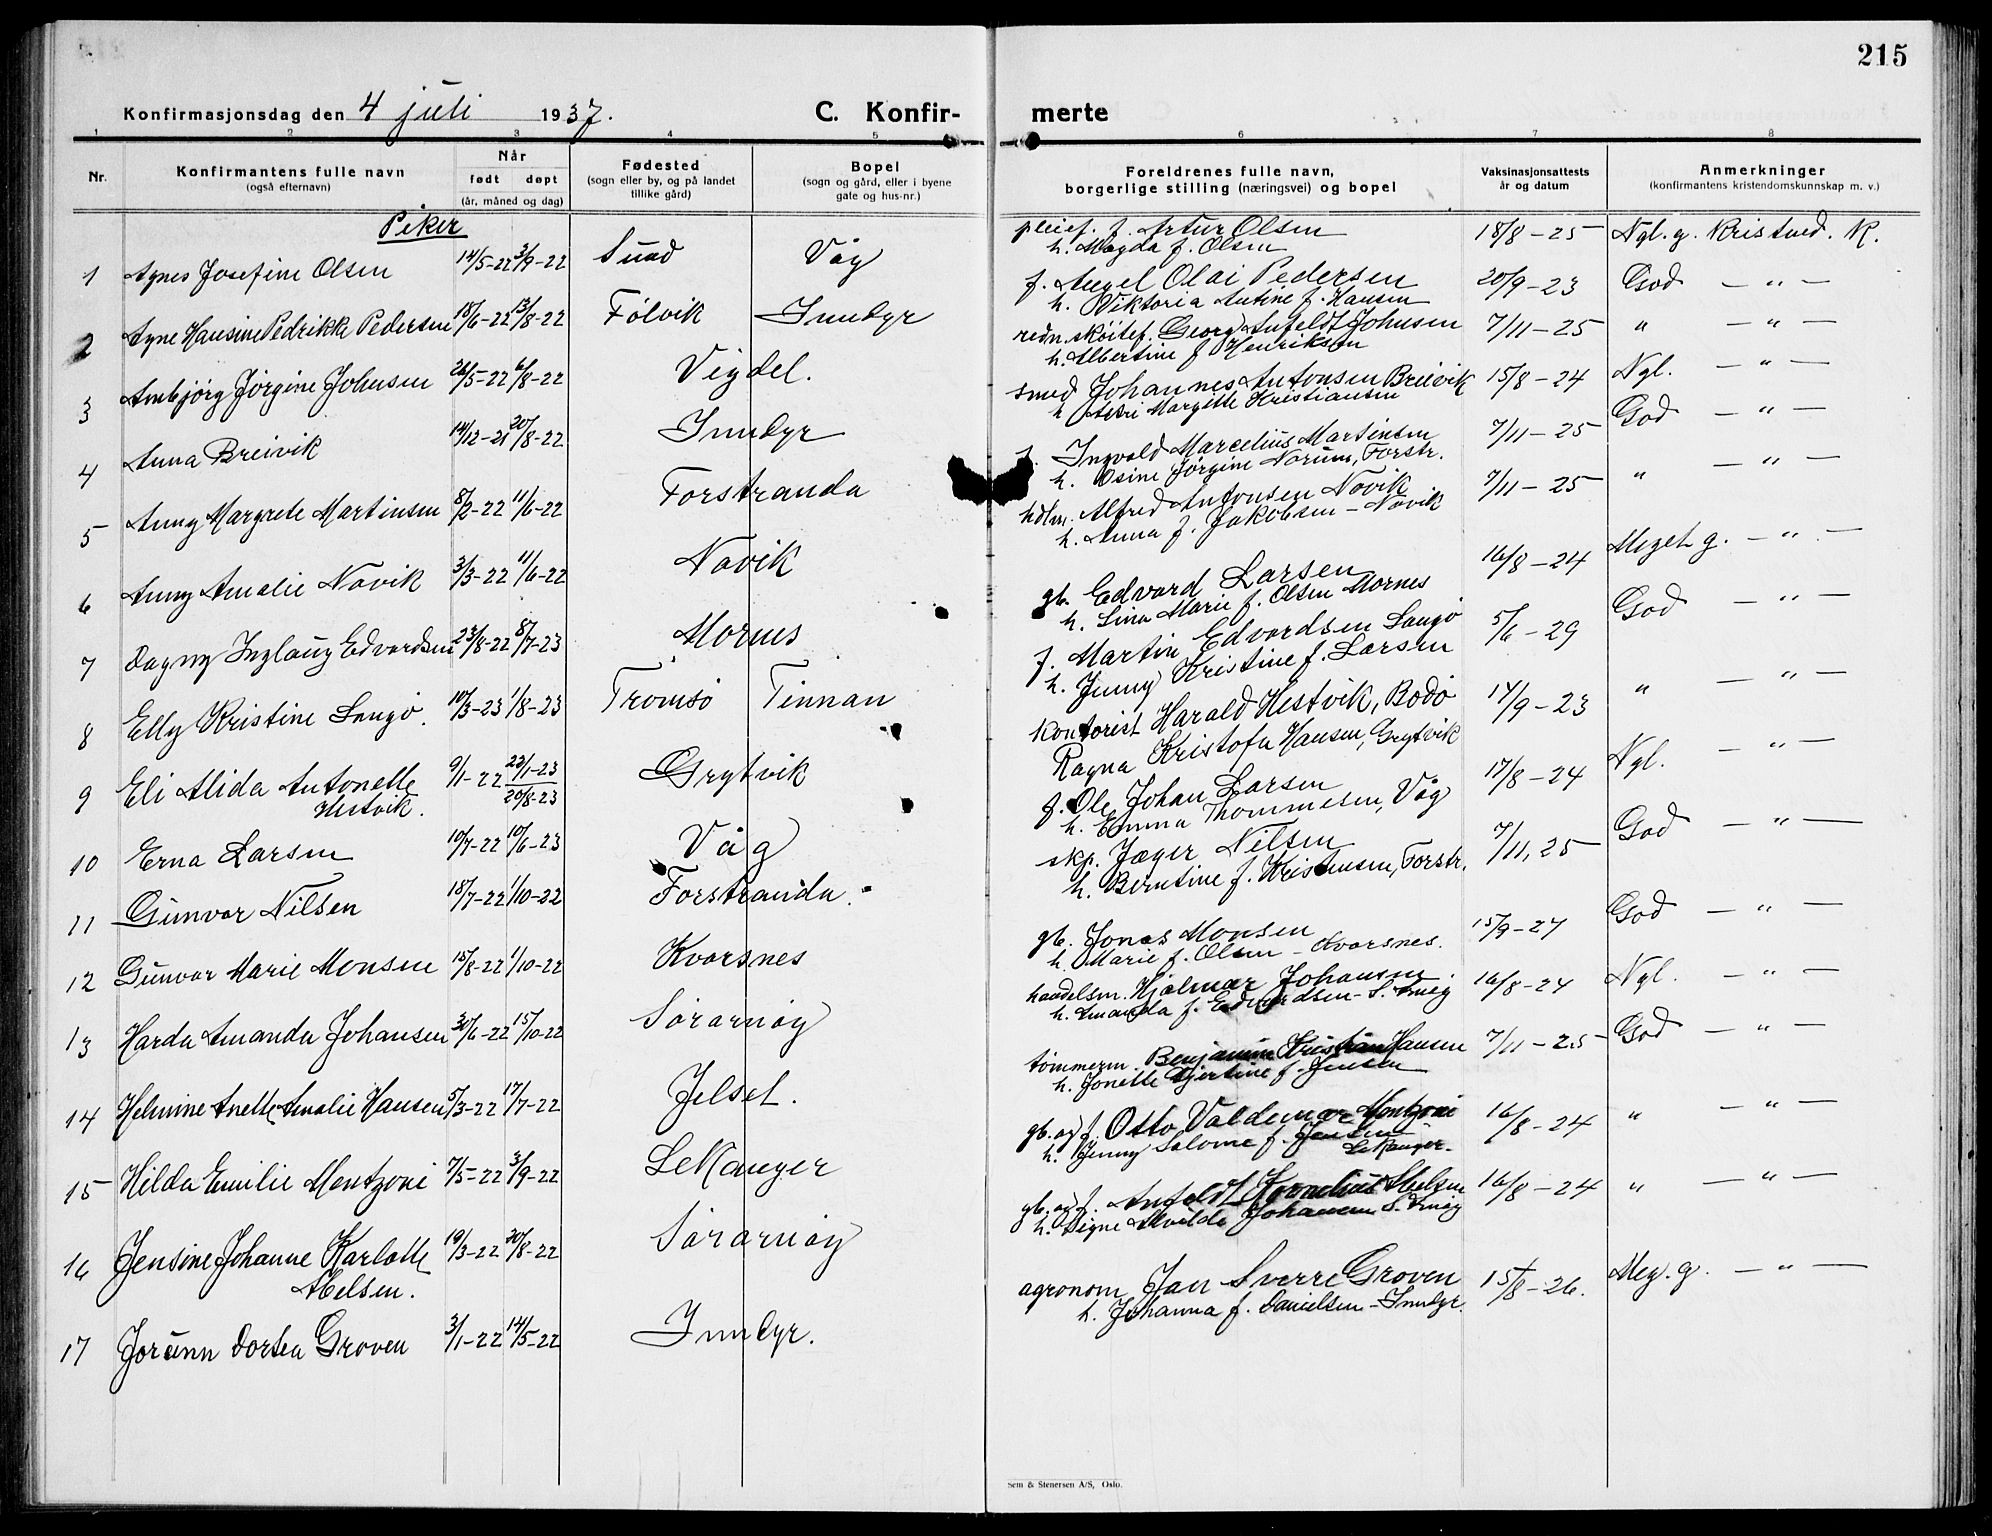 215
Konfirmasjonsdag den 4 juli 1937. C. Konfir- merte
1 2 3 4 5 6 7 8
Nr. Konfirmantens fulle navn (også efternavn) Når født døpt (år, måned og dag) Fødested (sogn eller by, og på landet tillike gård) Bopel (sogn og gård, eller i byene gate og hus-nr.) Foreldrenes fulle navn, borgerlige stilling (næringsvei) og bopel Vaksinasjonsattests år og datum Anmerkninger (konfirmantens kristendomskunnskap m. v.)
Piker
1 Agnes Josefine Olsen 14/5-22 3/9-22 Sund Våg pleief. f. Artur Olsen 18/8-25 Ngl. g. Kristned. K.
h. Magda f. Olsen
2 Agne Hansine Pedrikke Pedersen 18/6-22 13/8-22 Følvik Inndyr f. Angel Olai Pedersen 20/9-23 God — " —
h. Viktoria Antine f. Hansen
3 Annbjørg Jørgine Johnsen 26/5-22 6/8-22 Vigdel. redn.skøitef. Georg Anfeldt Johnsen 7/11-25 " — " —
h. Albertine f Henriksen
4 Anna Breivik 14/12-21 20/8-22 Inndyr smed Johannes Antonsen Breivik 15/8-24 Ngl. — " —
h. Margitte Kristiansen
5 Anny Margrete Martinsen 8/2-22 11/6-22 Forstranda f. Ingvald Marcelius Martinsen 7/11-25 God — " —
h. Osine Jørgine Norum, Forstr.
6 Anny Amalie Novik 3/3-22 11/6-22 Novik Alfred Antonsen Novik 7/11-25 " — " —
h. Anna f. Jakobsen - Novik
7 Dagny Inglaug Edvardsen 23/8-22 8/7-23 Mornes gb. Edvard Larsen 16/8-24 Meget g. — " —
h. Lina Marie f. Olsen Mornes
8 Elly Kristine Langø. 10/3-23 1/8-23 Tromsø Tinnan f. Martin Edvardsen Langø 5/6-29 God — " —
h. Jenny Kristine f. Larsen
9 Eli Alida Antonette Hestvik. 9/1-22 23/1-23 20/8-23 Grytvik kontorist Harald Hestvik, Bodø 14/9-23 " — " —
Ragna Kristofa Hansen, Grytvik
10 Erna Larsen 10/7-22 10/6-23 Våg f. Ole Johan Larsen 17/8-24 Ngl. — " —
h. Emma Thommesen, Våg
11 Gunvor Nilsen 18/7-22 1/10-22 Forstranda. skp. Jæger Nilsen 7/11, 25 God — " —
h. Berntine f. Kristensen, Forstr.
12 Gunvor Marie Monsen 15/8-22 1/10-22 Kvarsnes gb. Jonas Monsen 15/9-27 God — " —
h. Marie f. Olsen - Kvarsnes.
13 Harda Amanda Johansen 30/6-22 15/10-22 Sørarnøy handelsm. Hjalmar Johansen. 16/8-24 Ngl. — " —
h. Amanda f. Edvardsen - S. Arnøy
14 Helmine Anette Amalie Hansen 5/3-22 17/7-22 Jelset. tømmerm. Benjamin Kristian Hansen 7/11-25 God — " —
h. Jonette Hjertine f. Jensen
15 Hilda Emilie Mentzoni 7/5-22 3/9-22 Lekanger gb. og f. Otto Valdemar Mentzoni 16/8-24 " — " —
h. Jenny Salome f. Jensen Lekanger
16 Jensine Johanne Karlotte Abelsen. 19/3-22 20/8-22 Sørarnøy gb. og f. Anfeldt Kornelius Abelsen 16/8-24 " — " —
h. Signe Alvilde Johansen S. Arnøy
17 Jorunn Dortea Groven 3/1-22 14/5-22 Inndyr. agronom Jan Sverre Groven 15/8-26. Meg. g. — " —
h. Johanna f. Danielsen - Inndyr.
Sem & Stenersen A/S, Oslo.